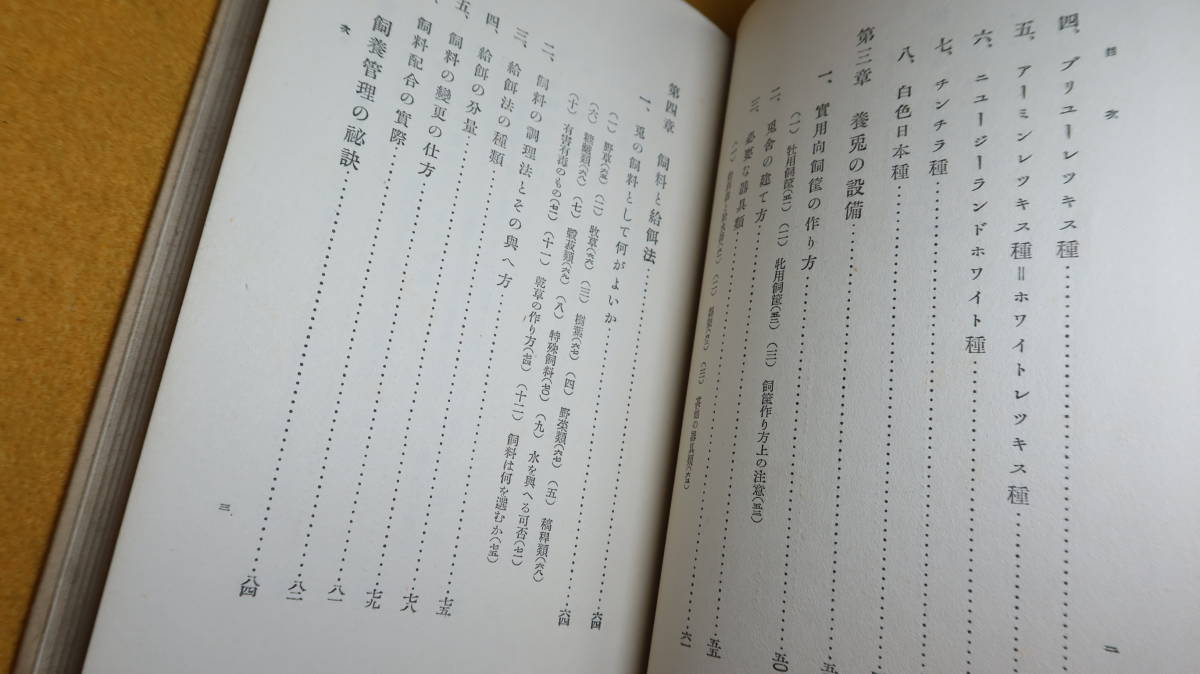 目次
四、ブリユーレツキス種
五、アーミンレツキス種＝ホワイトレツキス種
六、ニュージーランドホワイト種
七、チンチラ種
八、白色日本種
第三章 養兎の設備
一、實用向飼筐の作り方
（一）牡用飼筐（五二）（二）牝用飼筐（五三）（三）飼筐作り方上の注意（五三）
二、兎舍の建て方……五〇
三、必要な器具類……五五
六一
二
第四章 飼料と給餌法……六四
一、兎の飼料として何がよいか……六四
（一）野草（六五）（二）牧草（六六）（三）樹葉（六七）（四）野菜類（六七）（五）稿稈類（六八）
（六）糟糠類（六八）（七）穀菽類（六九）（八）特殊飼料（七〇）（九）水を與へる可否（七一）
（十）有害有毒のもの（七二）（十一）乾草の作り方（七四）（十二）飼料は何を選むか（七五）
二、飼料の調理法とその與へ方……七五
三、給餌法の種類……七八
四、給餌の分量……七九
五、飼料の變更の仕方……八一
飼料配合の實際……八二
飼養管理の祕訣……八四
次
三